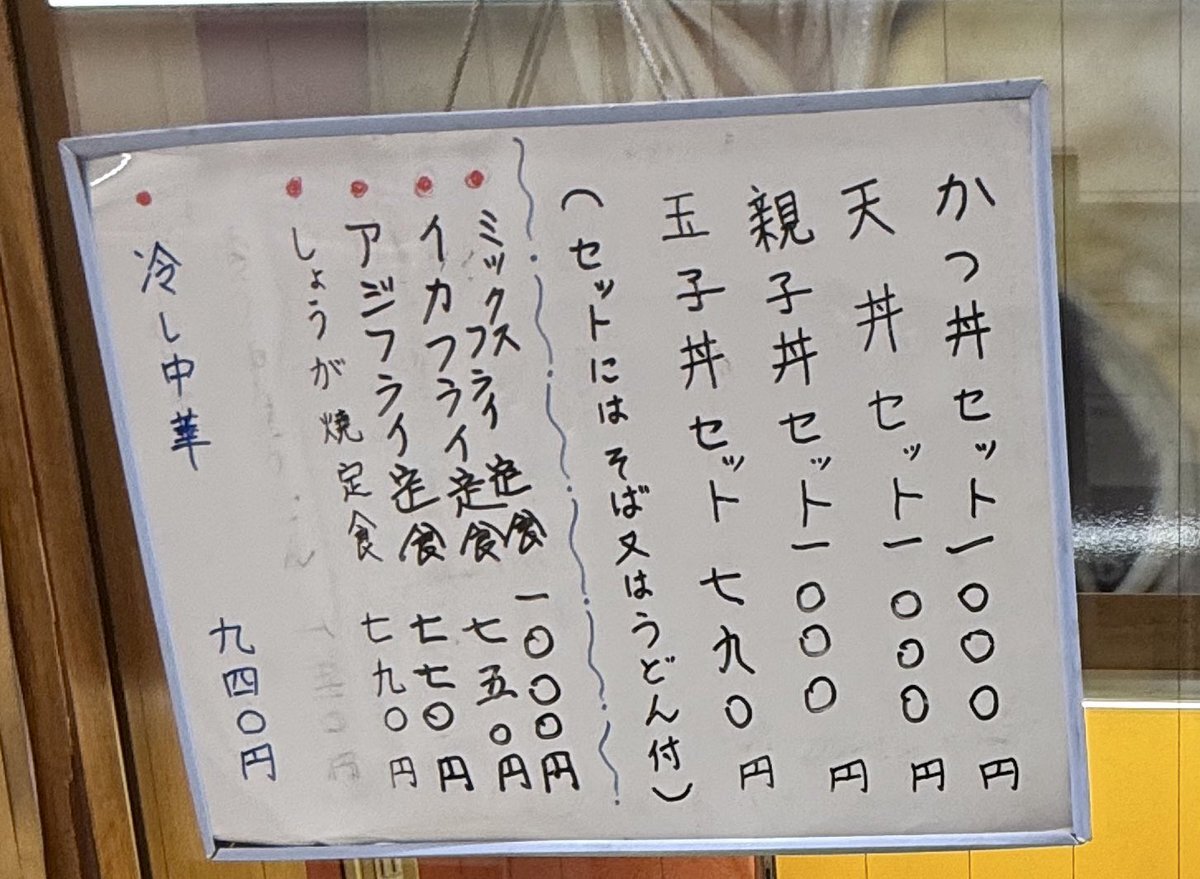 かつ丼セット一〇〇〇円
天丼セット一〇〇〇円
親子丼セット一〇〇〇円
玉子丼セット七九〇円
(セットにはそば又はうどん付)
ミックスフライ定食一〇〇〇円
イカフライ定食七五〇円
アジフライ定食七七〇円
しょうが焼定食七九〇円
冷し中華九四〇円